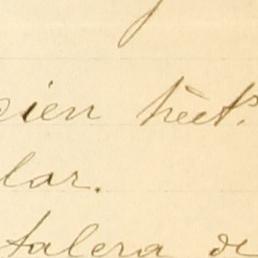 ien hect.
lar.
talera de